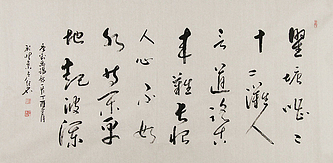 瞿塘嘈〻
十二灘人
言道路古
來難長恨
人心不如
水等閒平
地起波瀾